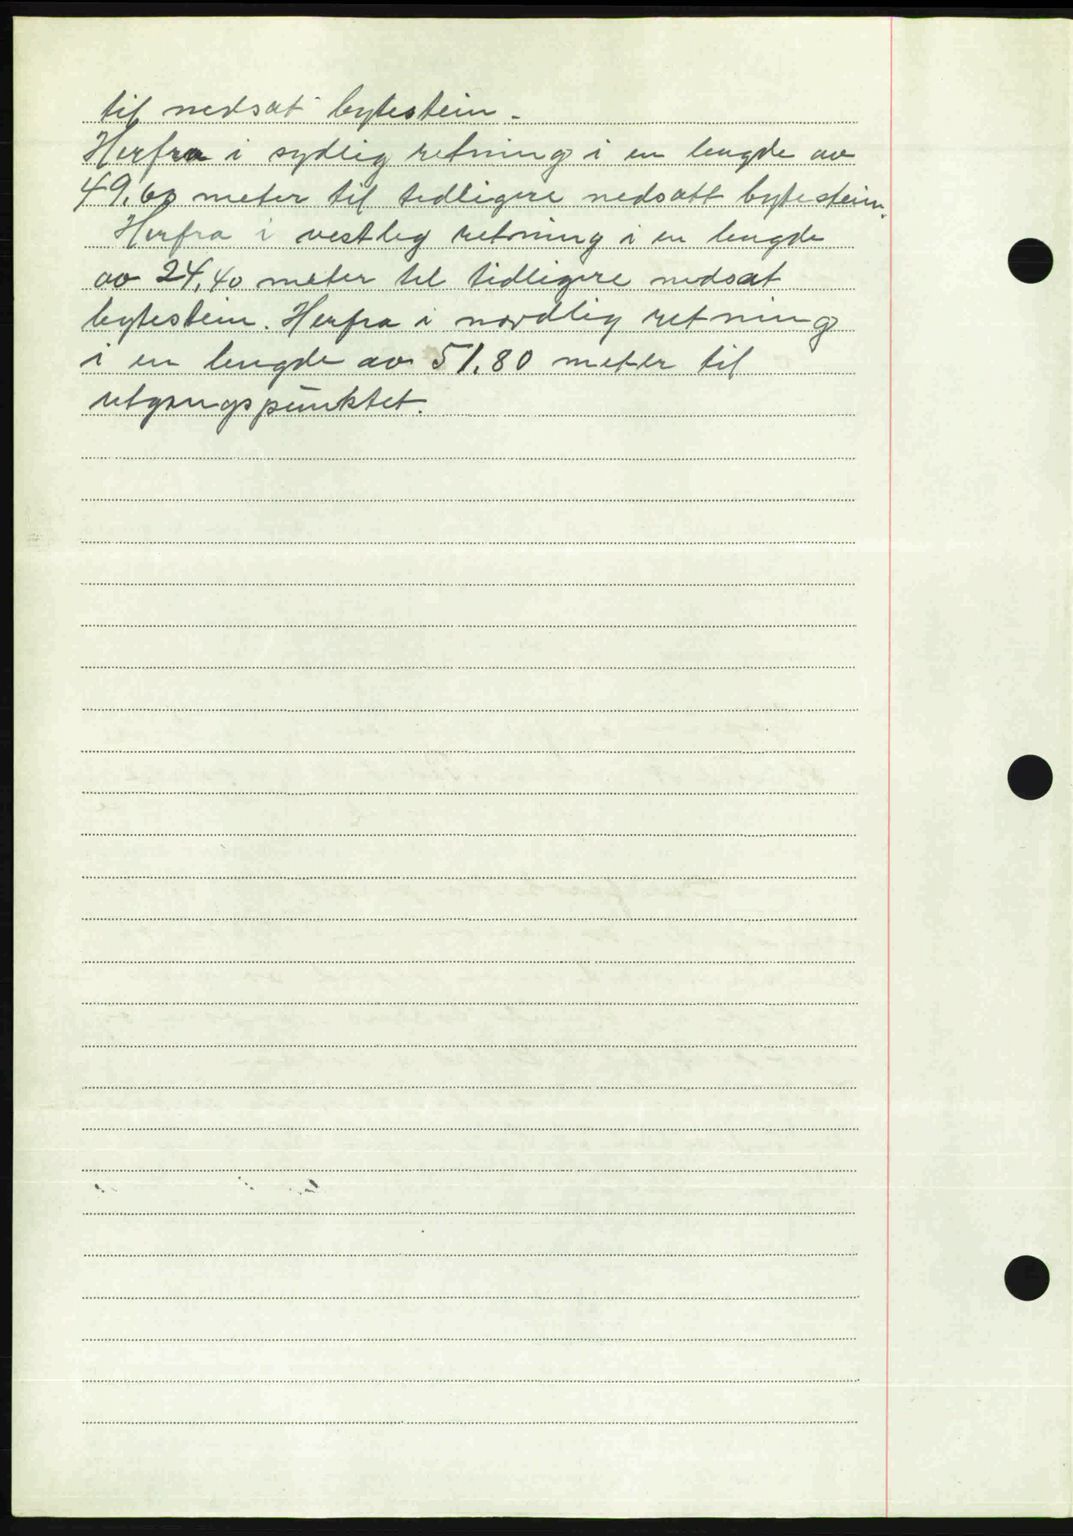 til nedsat bytestein.
Herfra i sydlig retning i en lengde av
49,60 meter til tidligere nedsatt bytestein.
Herfra i vestleg retning i en lengde
av 24,40 meter til tidligere nedsat
bytestein. Herfra i nordlig retning
i en lengde av 51,80 meter til
utgangspunktet.